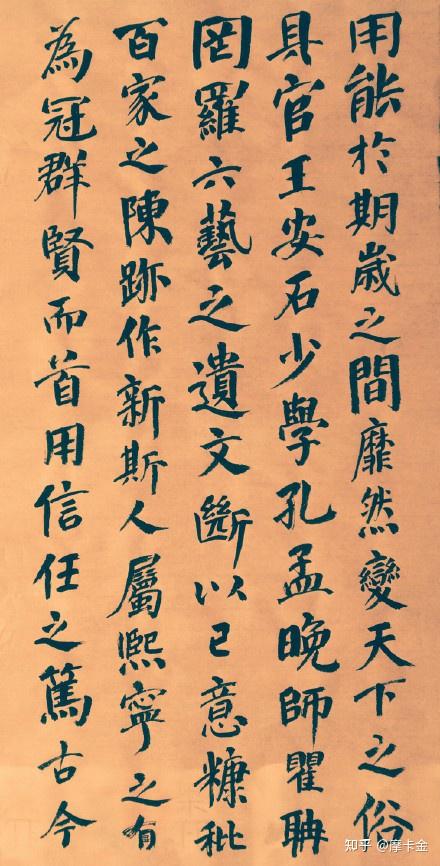 用能於期歲之間靡然變天下之俗
具官王安石少學孔孟晚師瞿聃
罔羅六藝之遺文斷以己意糠秕
百家之陳跡作新斯人屬熙寧之有
為冠群賢而首用信任之篤古今
知乎 @摩卡金